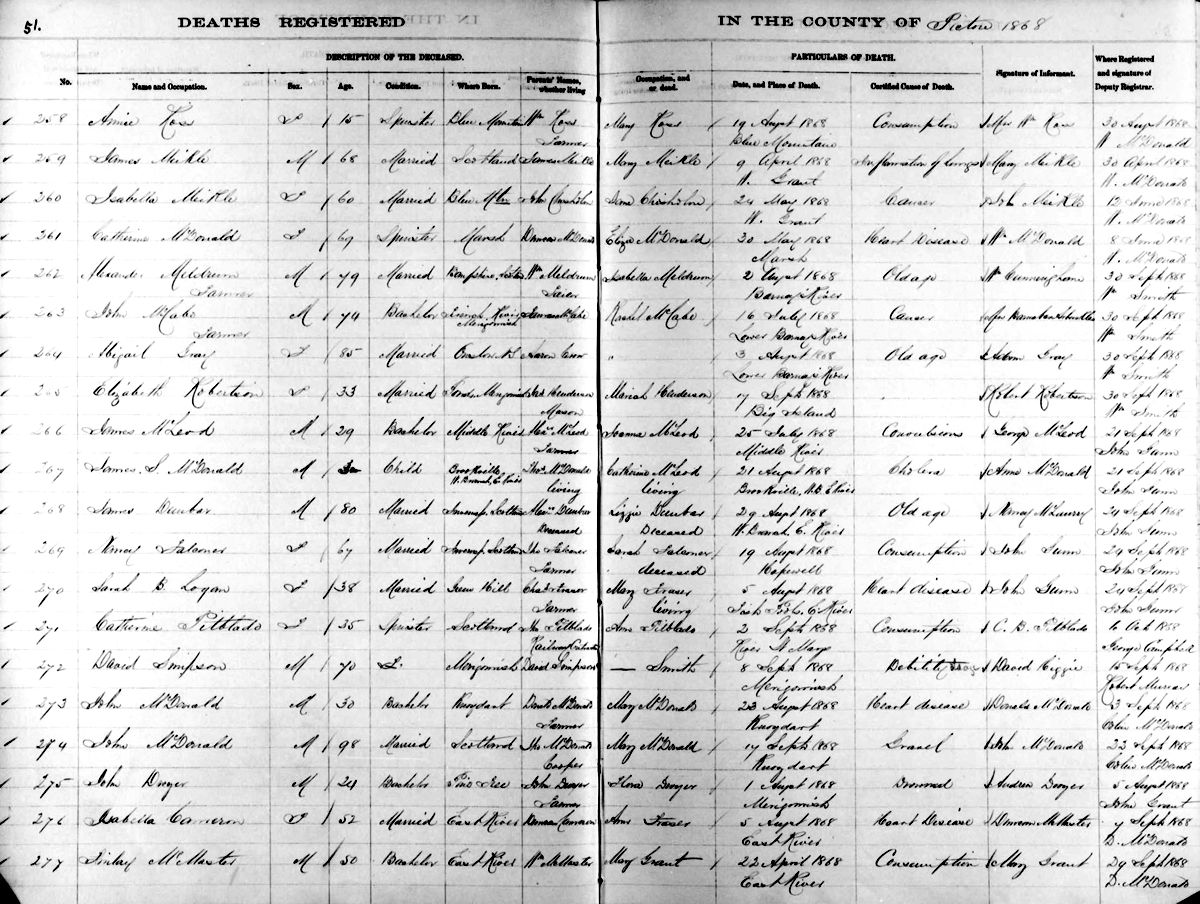 51.
DEATHS REGISTERED IN THE COUNTY OF Pictou 1868
DESCRIPTION OF THE DECEASED. PARTICULARS OF DEATH.
No. Name and Occupation. Sex. Age. Condition. Where Born. Parents' Names, whether living Occupation, and or dead. Date, and Place of Death. Certified Cause of Death. Signature of Informant. Where Registered and signature of Deputy Registrar.
258 Annie Ross F 15 Spinster Blue Mountain Wm Ross Mary Ross 19 Augst 1868 Consumption Mrs Wm Ross 30 August 1868
Farmer Blue Mountain W McDonald
259 James Meikle M 68 Married Scotland James Meikle Mary Meikle 9 April 1868 Inflammation of Lungs Mary Meikle 30 April 1868
W. Grant W. McDonald
260 Isabella Meikle F 60 Married Blue Mtn John Chisholm Chisholm 24 May 1868 Cancer Joh Meikle 12 June 1868
W. Grant W. McDonald
261 Catherine McDonald F 69 Spinster Marsh Duncan McDonald Eliza McDonald 30 May 1868 Heart Disease Wm McDonald 8 June 1868
Marsh W. McDonald
262 Alexander Meldrum M 79 Married Wm Meldrum Isabella Meldrum 2 Augst 1868 Old age Wm Cunningham 30 Sept 1868
Farmer Barney's River Wm Smith
263 John McCabe M 74 Bachelor James McCabe Rachel McCabe 16 July 1868 Cancer 30 Sept 1868
Farmer Merigomish Lower Barney's River Wm Smith
264 Abigail Gray F 85 Married Onslow NS Aaron Crow " 3 August 1868 Old age Adam Gray 30 Sept 1868
Lower Barney's River Wm Smith
265 Elizabeth Robertson F 33 Married Jas Henderson Mariah Henderson 17 Sept 1868 Robert Robertson 30 Sept 1868
Mason Big Island Wm Smith
266 James McLeod M 29 Bachelor Middle River Alexr McLeod Joanna McLeod 25 July 1868 Convulsions George McLeod 21 Sept 1868
Farmer Middle River John Gunn
267 James S. McDonald M Child Brookville, Thos McDonald Catherine McLeod 21 August 1868 Cholera Anne McDonald 21 Sept 1868
W. Branch, E. River living living Brookville, W.B. E River John Gunn
268 James Dunbar M 80 Married Inverness, Scotland Alexr Dunbar Lizzie Dunbar 29 Augst 1868 Old age Nancy McLaury 24 Sept 1868
Deceased Deceased W. Branch, E. River John Gunn
269 Nancy Falconer F 67 Married Inverness, Scotland Jno Falconer Sarah Falconer 19 Augst 1868 Consumption John Gunn 29 Sept 1868
Farmer deceased Hopewell John Gunn
270 Sarah B. Logan F 38 Married Green Hill Charles Fraser Mary Fraser 5 August 1868 Heart disease John Gunn 24 Sept 1868
Farmer living Fish Pools, E. River John Gunn
271 Catherine Pitblado F 35 Spinster Scotland Jno Pitblado Ann Pitblado 2 Septr 1868 Consumption C. B. Pitblado 10 Oct 1868
Railway Contractor River St Marys George Campbell
272 David Simpson M 70 Merigomish David Simpson — Smith 8 Sept 1868 Debility David Kiggie 15 Sept 1868
Merigomish Robert Murray
273 John McDonald M 30 Bachelor Knoydart Donald McDonald Mary McDonald 23 Augst 1868 Heart disease Donald McDonald 3 Sept 1868
Farmer Knoydart Colin McDonald
274 John McDonald M 98 Married Scotland Jno McDonald Mary McDonald 17 Septr 1868 Gravel John McDonald 22 Sept 1868
Cooper Knoydart Colin McDonald
275 John Dwyer M 24 Bachelor Pine Tree John Dwyer Flora Dwyer 1 Augst 1868 Drowned Andrew Dwyer 5 Augst 1868
Farmer Merigomish John Grant
276 Isabella Cameron F 52 Married East River Duncan Cameron Ann Fraser 5 Augst 1868 Heart Disease Duncan McMaster 7 Sept 1868
East River D. McDonald
277 Finlay McMaster M 50 Bachelor East River Wm McMaster Mary Grant 22 April 1868 Consumption Mary Grant 29 Sept 1868
East River D. McDonald